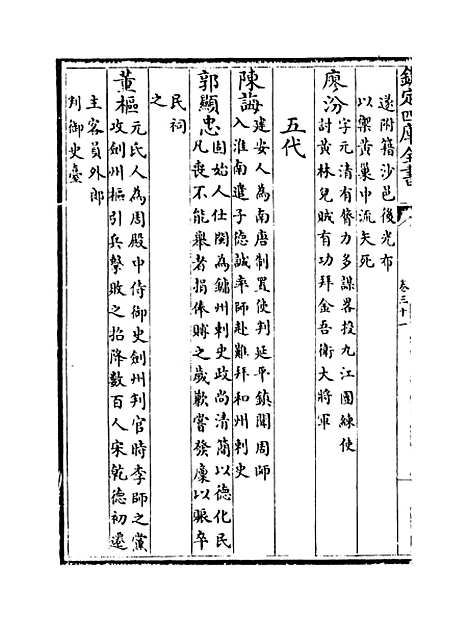 欽定四庫全書
卷三十一
遂附籍沙邑後光布
以禦黃巢中流矢死
廖汾字元清有膂力多謀畧投九江團練使
討黃林兒賊有功拜金吾衛大將軍
五代
陳誨建安人為南唐制置使判延平鎮聞周師
入淮南遣子德誠率師赴難拜和州刺史
郭顯忠固始人仕閩為鏞州刺史政尚清簡以德化民
凡喪不能舉者捐俸賻之歲歉嘗發廩以賑卒
民祠
之
董樞元氏人為周殿中侍御史劍州判官時李師之黨
攻劍州樞引兵擊敗之招降數百人宋乾德初遷
主客員外郎
判御史臺